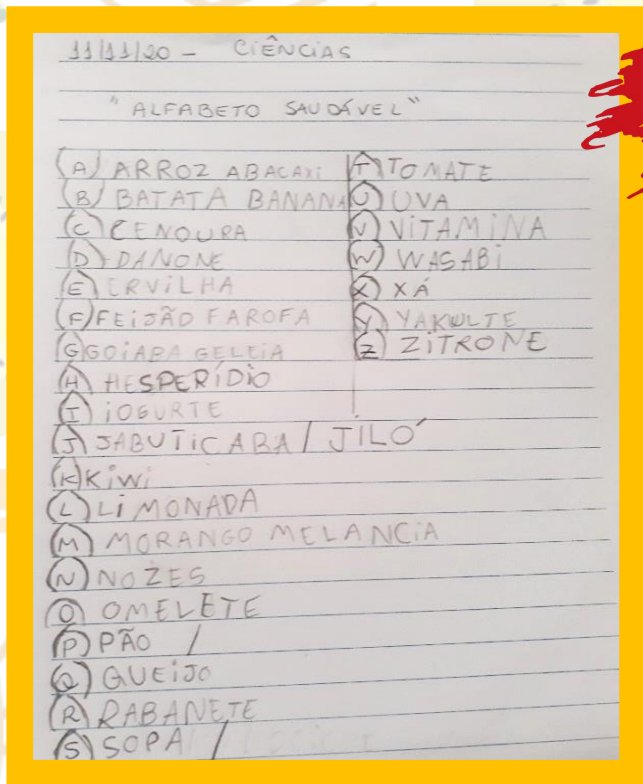 11/11/20 - CIÊNCIAS
"ALFABETO SAUDÁVEL"
(A) ARROZ ABACAXI
(B) BATATA BANANA
(C) CENOURA
(D) DANONE
(E) ERVILHA
(F) FEIJÃO FAROFA
(G) GOIABA GELEIA
(H) HESPERÍDIO
(I) IOGURTE
(J) JABUTICABA / JILÓ
(K) KIWI
(L) LIMONADA
(M) MORANGO MELANCIA
(N) NOZES
(O) OMELETE
(P) PÃO /
(Q) QUEIJO
(R) RABANETE
(S) SOPA /
(T) TOMATE
(U) UVA
(V) VITAMINA
(W) WASABI
(X) XÁ
(Y) YAKULTE
(Z) ZITRONE